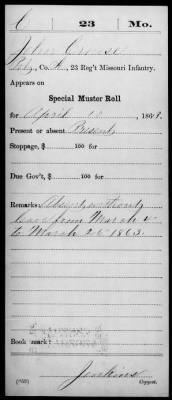 C 23 Mo.
John Crouse
Pvt, Co. K, 23 Reg't Missouri Infantry.
Appears on
Special Muster Roll
for April 10, 1863.
Present or absent Present
Stoppage, $ 100 for
Due Gov't, $ 100 for
Remarks: Absent without
leave from March 4
to March 26 1863.
Book mark:
Jenkins
(858) Copyist.